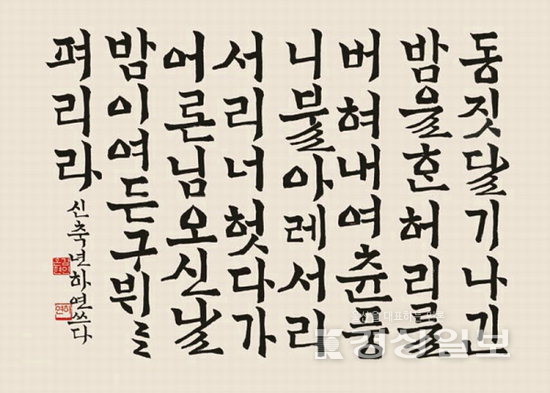 동짓달기나긴
밤을흔허리를
버혀내여츈풍
니불아레서리
서리너헛다가
어론님오신날
밤이여든구뷔를
펴리라
신축년하연쓰다
경상일보